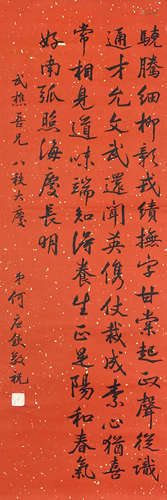 驍騰細柳彰戎績撫字甘棠起政聲從識
通才允文武還聞英儁仗栽成素心猶喜
常相見道味端知得養生正是陽和春氣
好南弧照海慶長明
武樵吾兄八秩大慶
弟何應欽敬祝